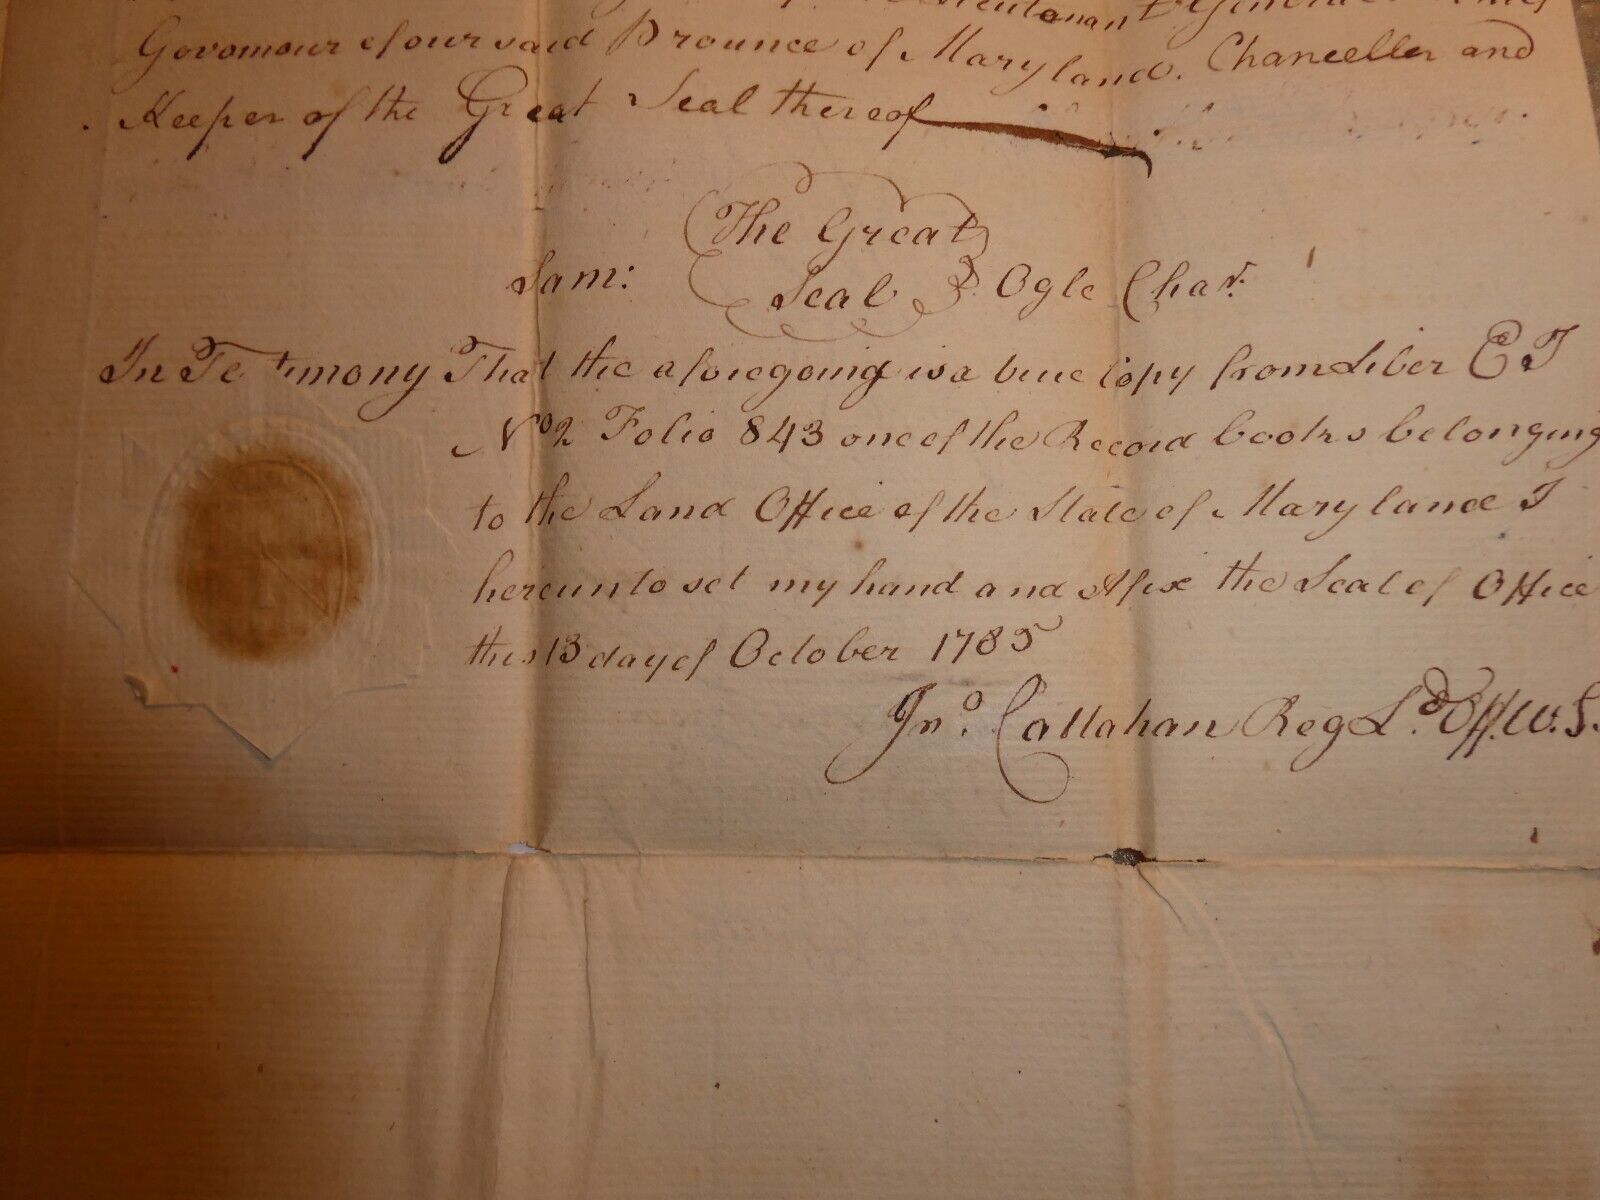 Lieutenant General
Governour of our said Province of Maryland. Chancellor and
Keeper of the Great Seal thereof
The Great
Sam: Seal Ogle Char.
In Testimony That the aforegoing is a true Copy from Liber E I
No 2 Folio 843 one of the Record books belonging
to the Land Office of the State of Maryland I
hereunto set my hand and Afix the Seal of Office
this 13 day of October 1785
Jno. Callahan Reg Ld. Off. W. S.